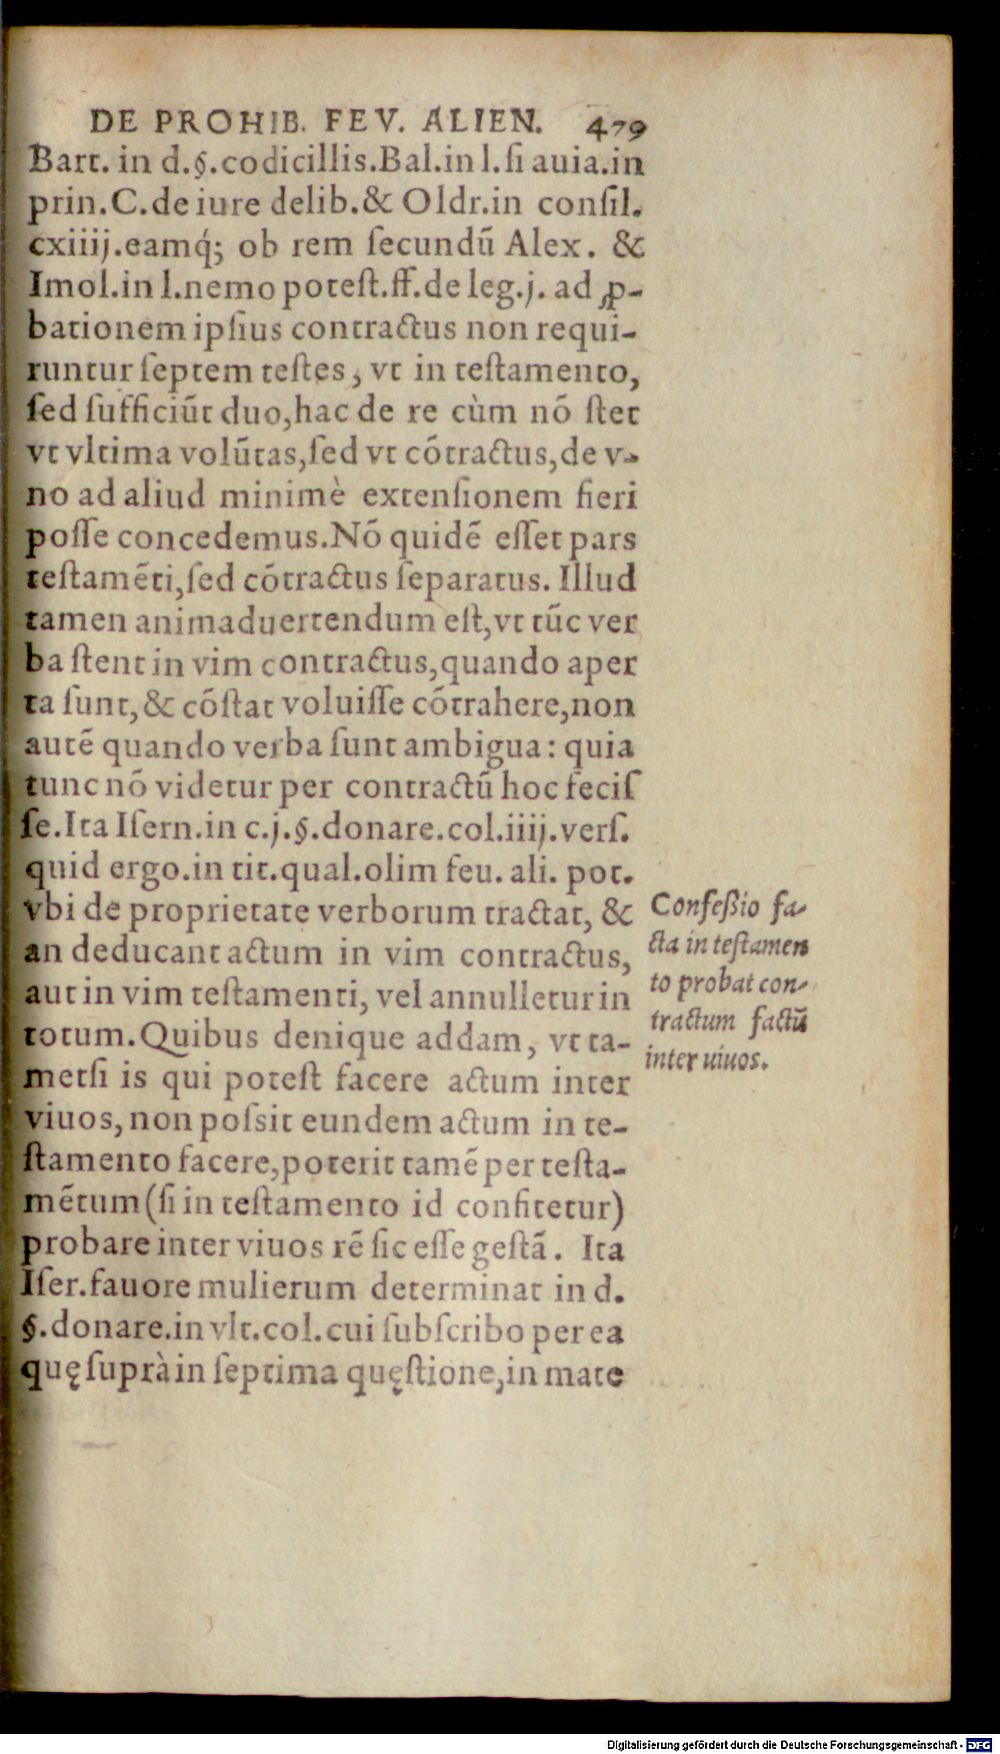 DE PROHIB. FEV. ALIEN. 479
Bart. in d.§.codicillis.Bal.in l.ſi auia.in
prin.C.de iure delib.& Oldr.in conſil.
cxiiij.eamq́; ob rem ſecundũ Alex. &
Imol.in l.nemo poteſt.ff.de leg.j. ad ꝓ-
bationem ipſius contractus non requi-
runtur ſeptem teſtes, vt in teſtamento,
ſed ſufficiũt duo,hac de re cùm nõ ſtet
vt vltima volũtas,ſed vt cõtractus,de v-
no ad aliud minimè extenſionem fieri
poſſe concedemus.Nõ quidẽ eſſet pars
teſtamẽti,ſed cõtractus ſeparatus. Illud
tamen animaduertendum eſt,vt tũc ver
ba ſtent in vim contractus,quando aper
ta ſunt,& cõſtat voluiſſe cõtrahere,non
autẽ quando verba ſunt ambigua: quia
tunc nõ videtur per contractũ hoc feciſ
ſe.Ita Iſern.in c.j.§.donare.col.iiij.verſ.
quid ergo.in tit.qual.olim feu. ali. pot.
vbi de proprietate verborum tractat, &
an deducant actum in vim contractus,
aut in vim teſtamenti, vel annulletur in
totum.Quibus denique addam, vt ta-
metſi is qui poteſt facere actum inter
viuos, non poſsit eundem actum in te-
ſtamento facere,poterit tamẽ per teſta-
mẽtum (ſi in teſtamento id confitetur)
probare inter viuos rẽ ſic eſſe geſtã. Ita
Iſer.fauore mulierum determinat in d.
§.donare.in vlt.col.cui ſubſcribo per ea
quę ſuprà in ſeptima quęſtione,in mate
Confeßio fa-
cta in teſtamen
to probat con-
tractum factũ
inter uiuos.
Digitalisierung gefördert durch die Deutsche Forschungsgemeinschaft - DFG